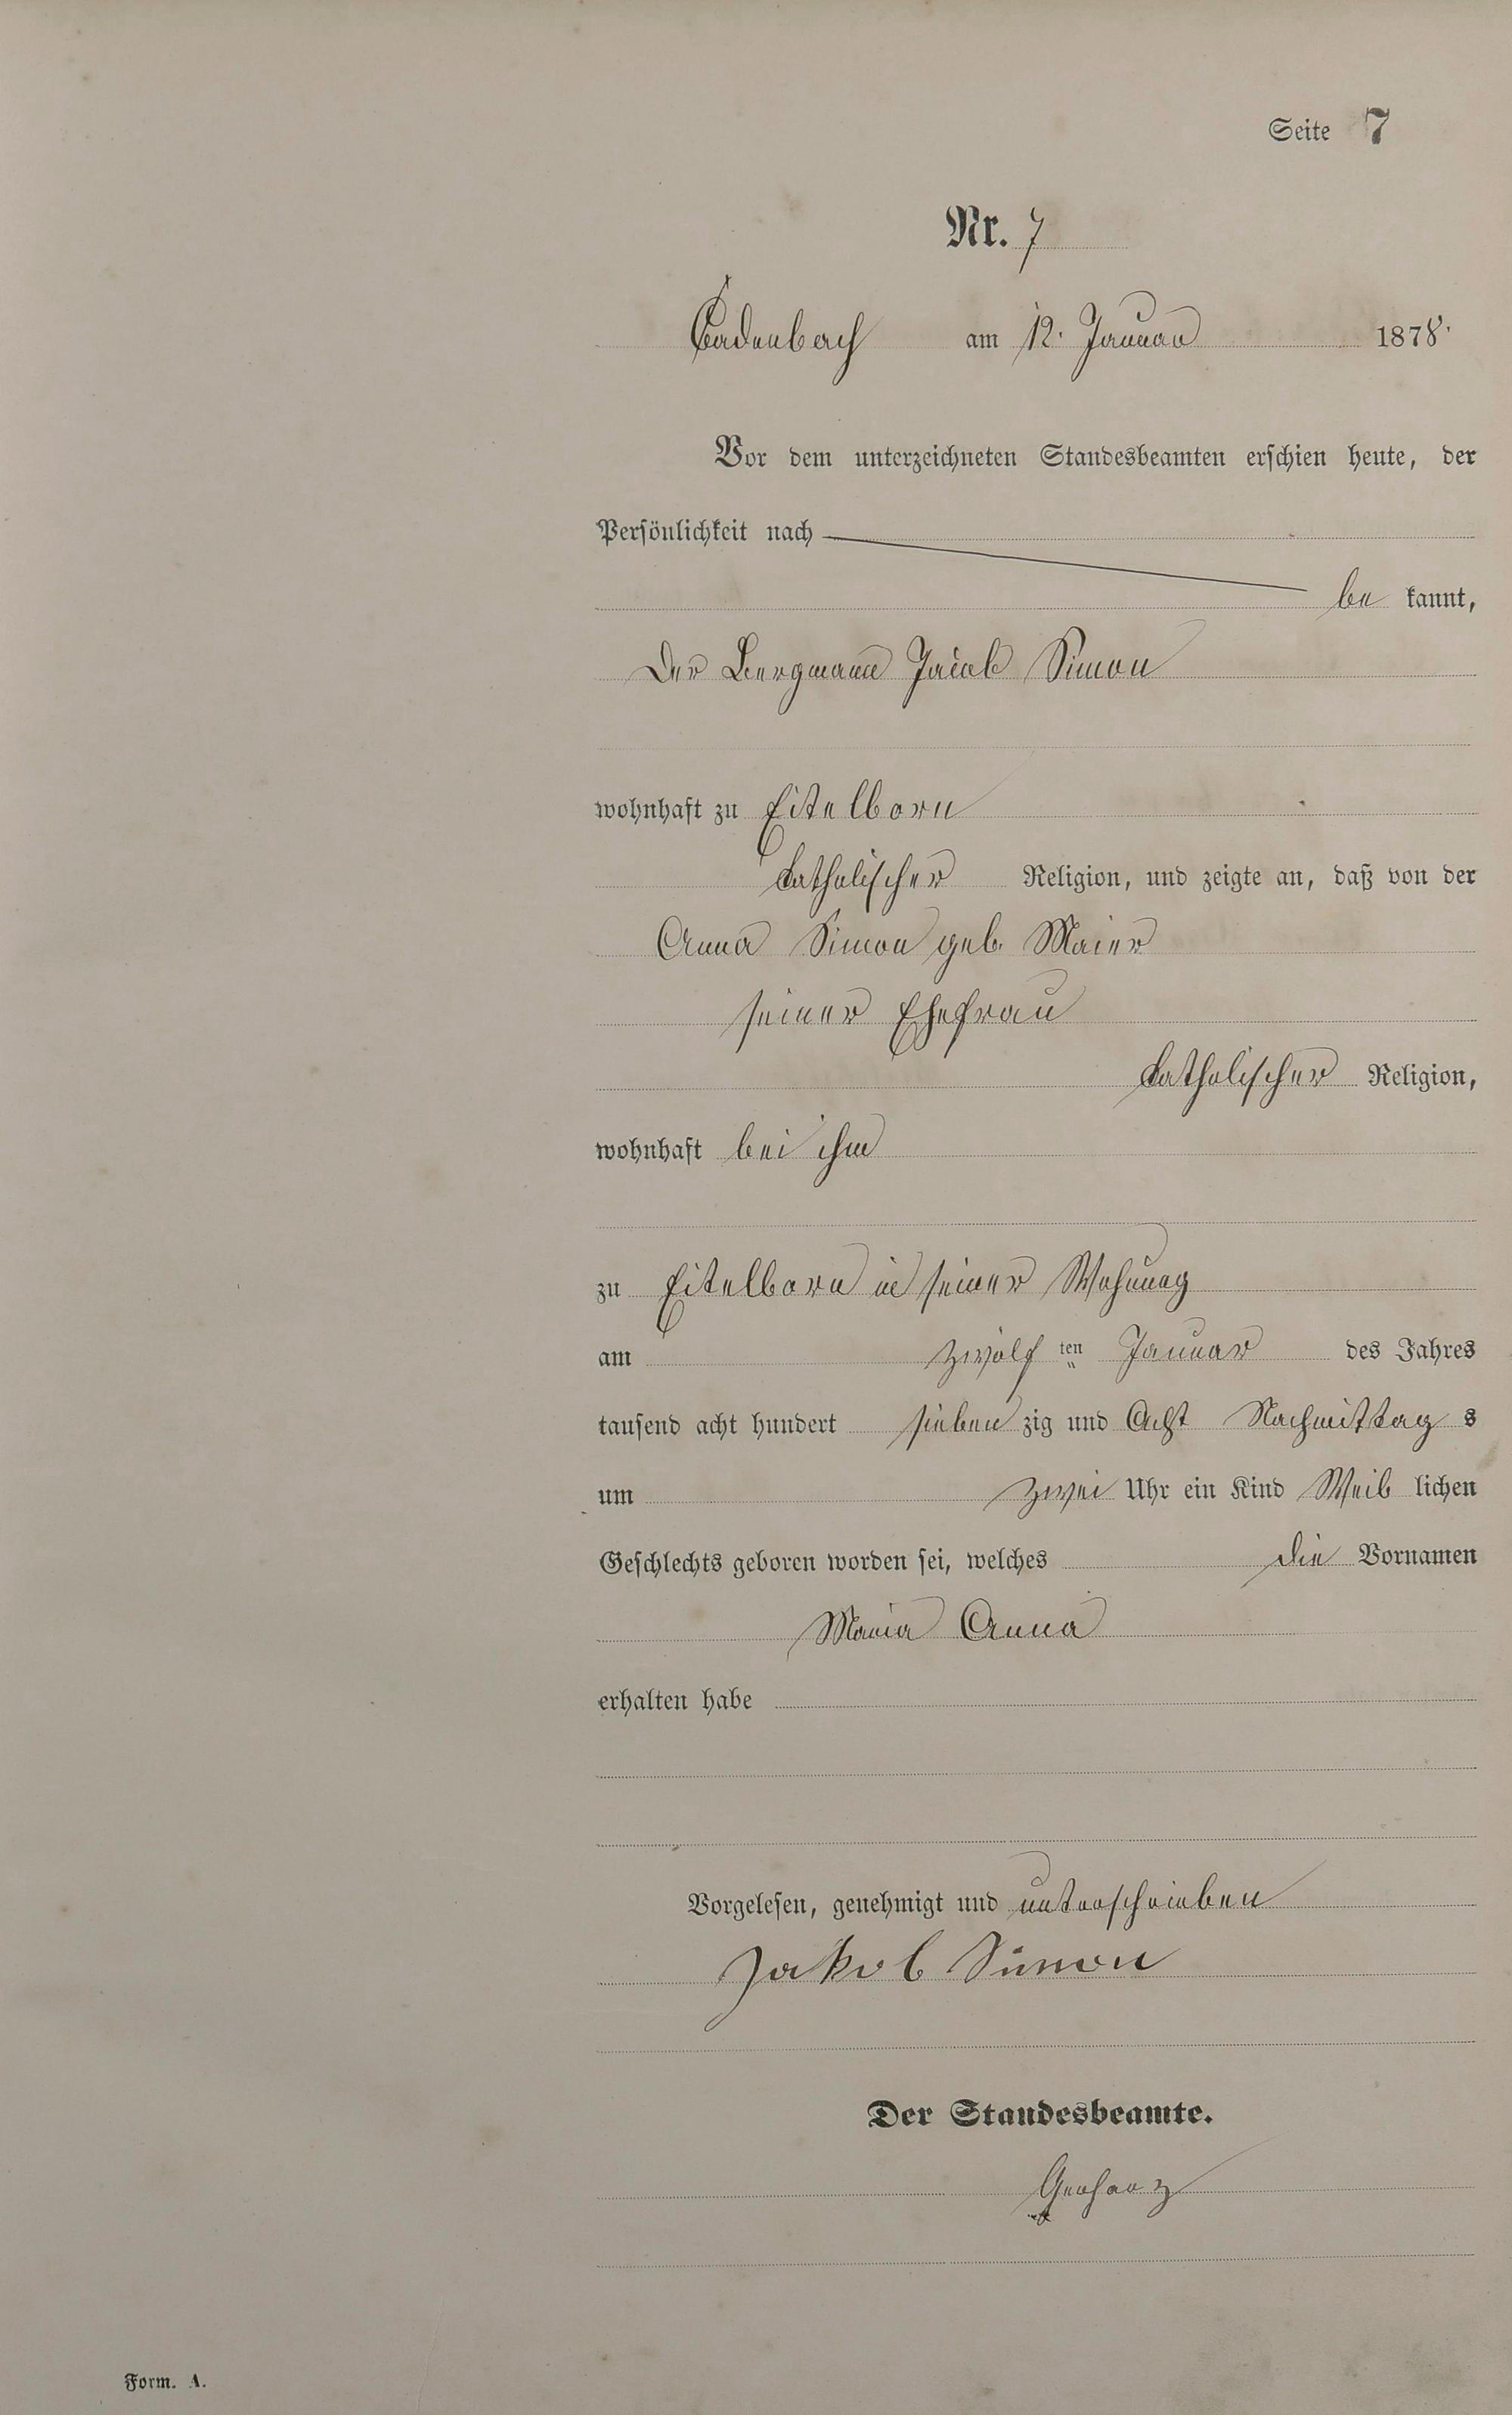 Seite 7
Nr. 7
Cadenbach am 12. Januar 1878.
Vor dem unterzeichneten Standesbeamten erschien heute, der
Persönlichkeit nach
be kannt,
der Bergmann Jacob Simon
wohnhaft zu Eitelborn
katholischer Religion, und zeigte an, daß von der
Anna Simon geb. Maier
seiner Ehefrau
katholischer Religion,
wohnhaft bei ihm
zu Eitelborn in seiner Wohnung
am zwölf ten Januar des Jahres
tausend acht hundert sieben zig und Acht Nachmittag s
um zwei Uhr ein Kind Weib lichen
Geschlechts geboren worden sei, welches die Vornamen
Maria Anna
erhalten habe
Vorgelesen, genehmigt und unterschrieben
Jakob Simon
Der Standesbeamte.
Gerharz
Form. A.